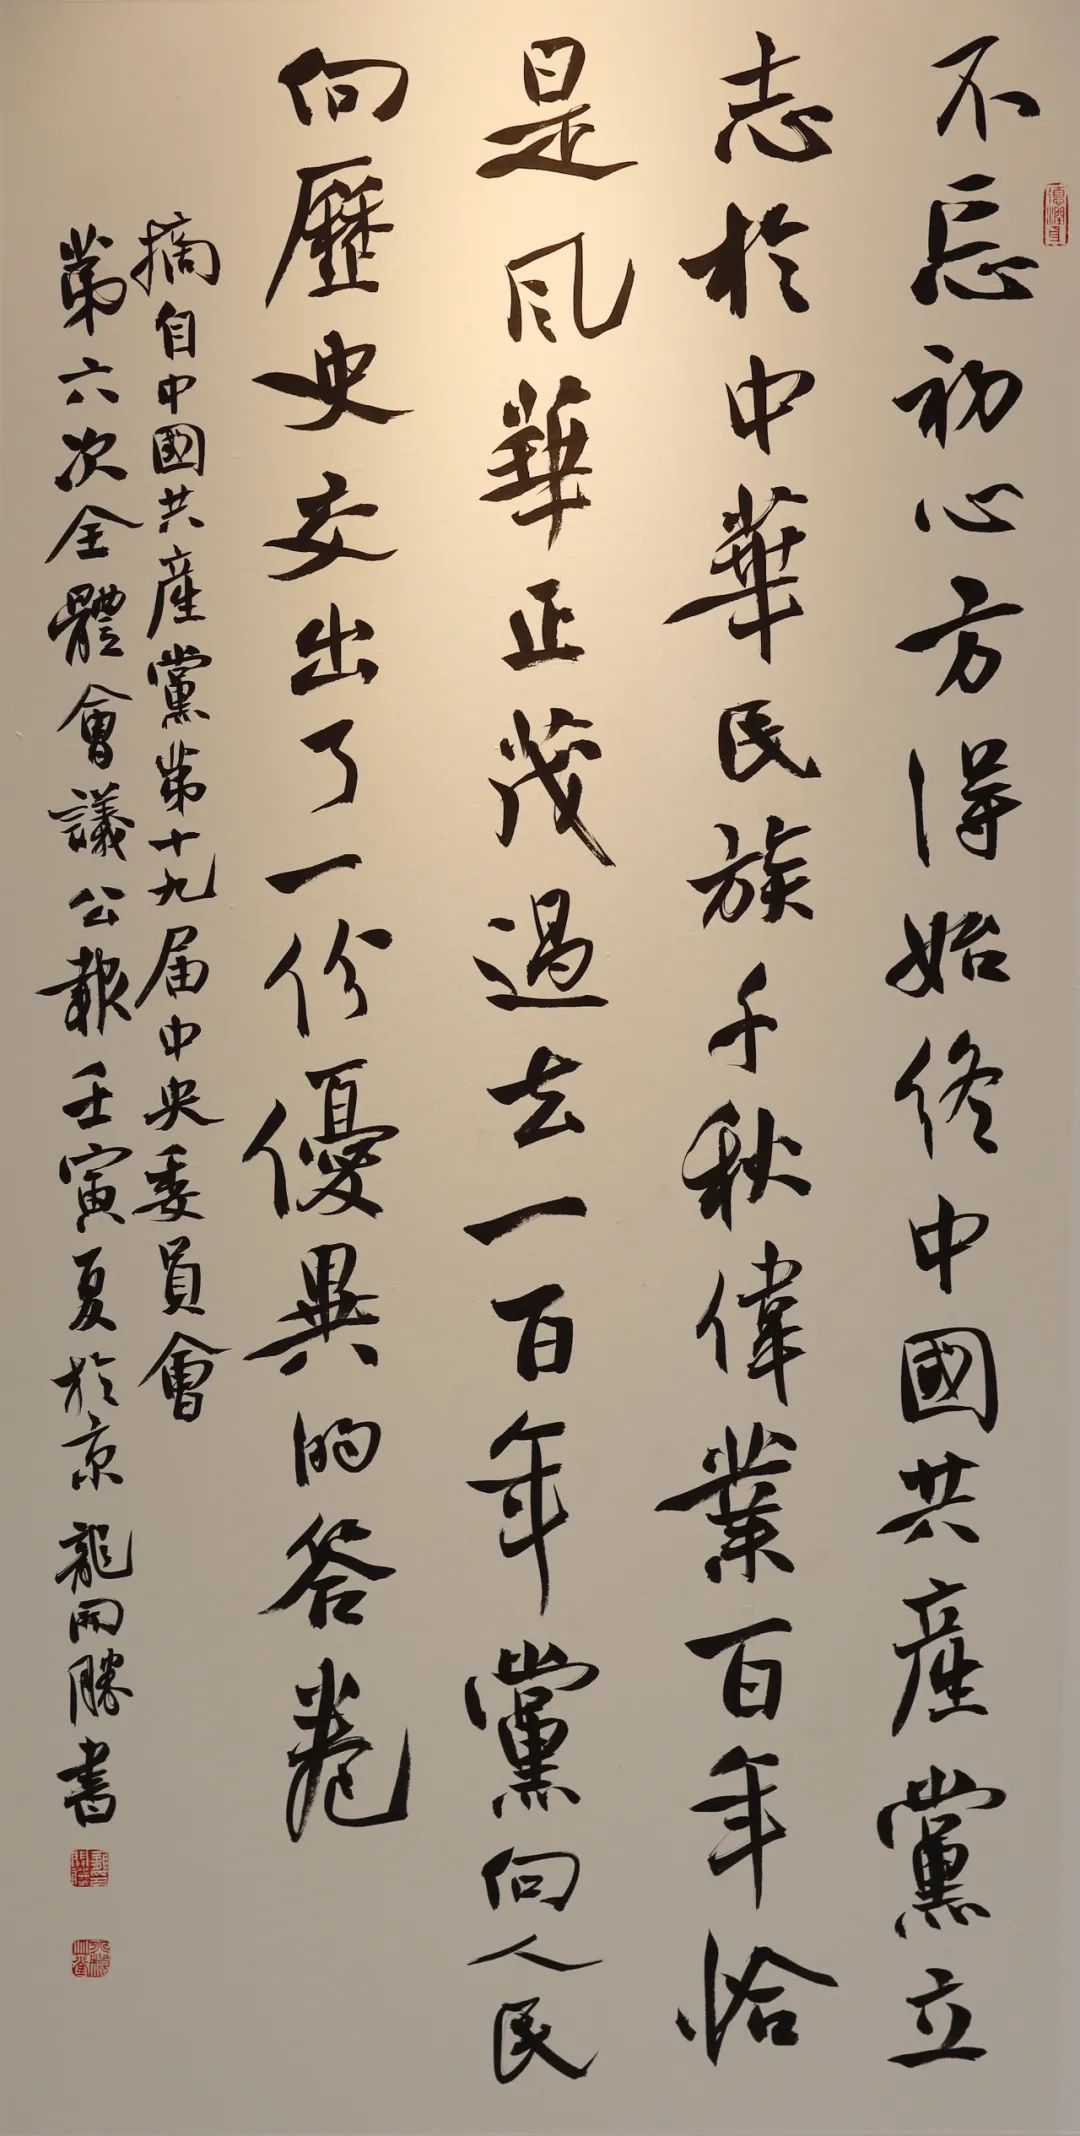 不忘初心方得始終中國共産黨立
志於中華民族千秋偉業百年恰
是风華正茂過去一百年黨向人民
向歷史交出了一份優異的答卷
摘自中國共産黨第十九届中央委員會
第六次全體會議公報壬寅夏於京龍開勝書